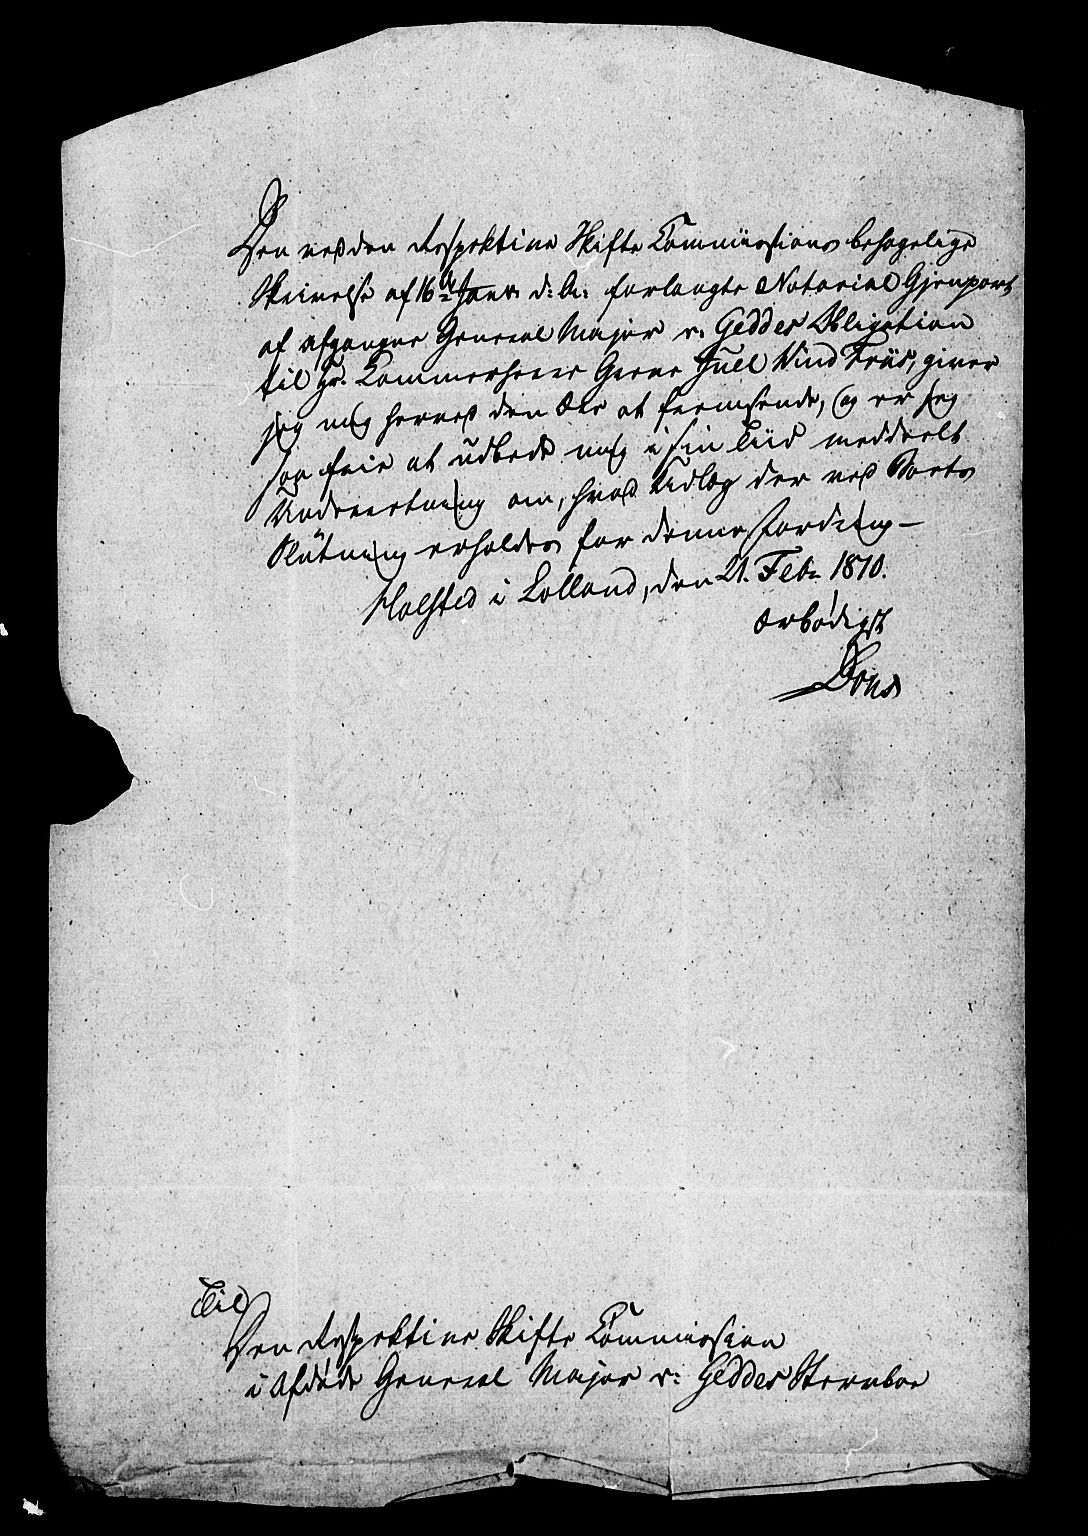 Den ved den Respektive Skifte Commissions behagelige
Skrivelse af 16de Janr. d: A: forlangte Notarial Gjenpart
af afgangne General Major v: Geddes Obligation
til Hr. Kammerherre Greve Juell Wind Friis, giver
jeg mig herved den Ære at fremsende, og er jeg
saa frie at udbede mig i sin Tiid meddeelt
Underretning om, hvad Udlæg der ved Boets
Slutning erholdes for denne Fordring—
Halsted i Lolland, den 21. Febr. 1810.
ærbødigst
Dons
Til
Den Respektive Skifte Commission
i Afdøde General Major v: Geddes Sterboe